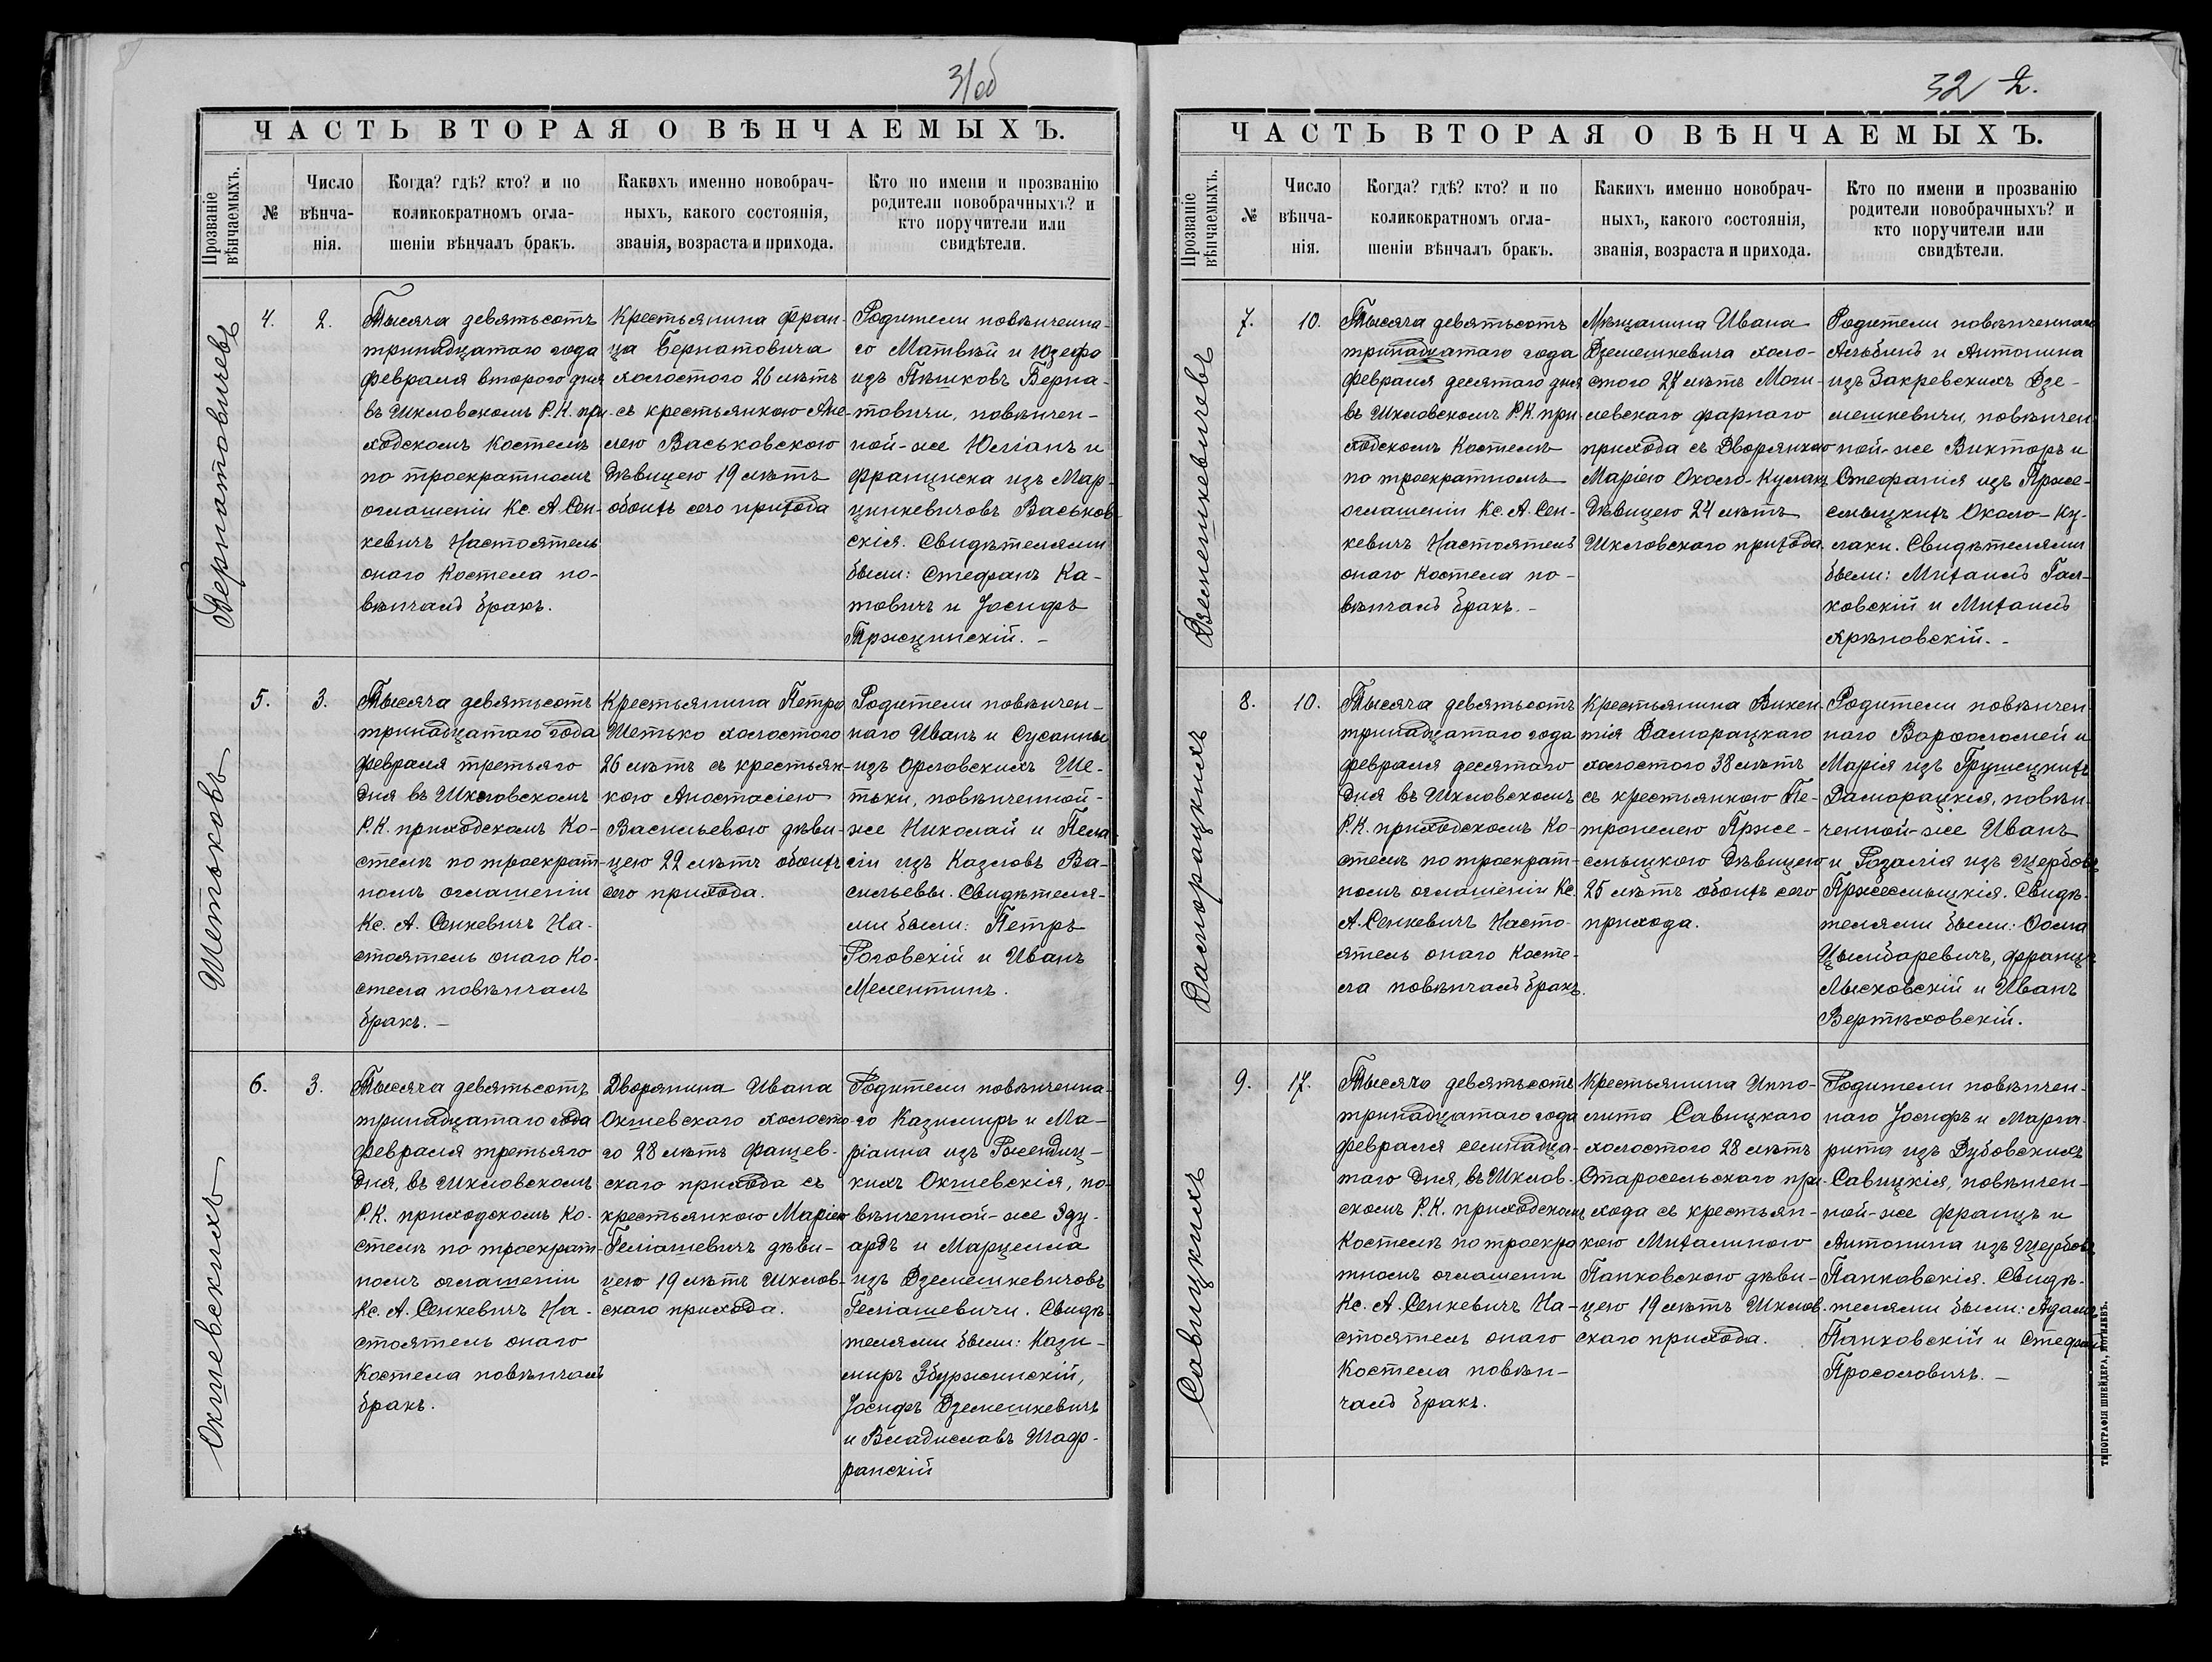 31об
ЧАСТЬ ВТОРАЯ О ВѢНЧАЕМЫХЪ.
Прозваніе вѣнчаемыхъ.
№
Число
вѣнча-
нія.
Когда? гдѣ? кто? и по
коликократномъ огла-
шеніи вѣнчалъ бракъ.
Какихъ именно новобрач-
ныхъ, какого состоянія,
званія, возраста и прихода.
Кто по имени и прозванію
родители новобрачныхъ? и
кто поручители или
свидѣтели.
Бернатовичевъ
4.
2.
Тысяча девятьсотъ
тринадцатаго года
февраля второго дня
въ Шкловскомъ Р.К. при-
ходскомъ Костелѣ
по троекратномъ
оглашеніи Кс. А. Сен-
кевичъ Настоятель
онаго Костела по-
вѣнчалъ бракъ.
Крестьянина Фран-
ца Бернатовича
холостого 26 лѣтъ
съ крестьянкою Ане-
лею Васьковскою
дѣвицею 19 лѣтъ
обоихъ сего прихода
Родители повѣнчанна-
го Матвѣй и Юзефа
изъ Пѣшковъ Берна-
товичи, повѣнчен-
ной-же Юліанъ и
Франциска изъ Мар-
цинкевичовъ Васьков-
скія. Свидѣтелями
были: Стефанъ Ка-
товичъ и Іосифъ
Тржцинскій. –
Шетьковъ
5.
3.
Тысяча девятьсотъ
тринадцатаго года
февраля третьяго
дня въ Шкловскомъ
Р.К. приходскомъ Ко-
стелѣ по троекрат-
номъ оглашеніи
Кс. А. Сенкевичъ На-
стоятель онаго Ко-
стела повѣнчалъ
бракъ. –
Крестьянина Петра
Шетько холостого
26 лѣтъ съ крестьян-
кою Анастасіею
Васильевою дѣви-
цею 22 лѣтъ обоихъ
сего прихода.
Родители повѣнчен-
наго Иванъ и Сусанны
изъ Орловскихъ Ше-
тьки, повѣнченной-
же Николай и Пела-
гіи изъ Казловъ Ва-
сильевы. Свидѣтеля-
ми были: Петръ
Роговскій и Иванъ
Мелентинъ.
Окшевскихъ
6.
3.
Тысяча девятьсотъ
тринадцатаго года
февраля третьяго
дня, въ Шкловскомъ
Р.К. приходскомъ Ко-
стелѣ по троекрат-
номъ оглашеніи
Кс. А. Сенкевичъ На-
стоятель онаго
Костела повѣнчалъ
бракъ.
Дворянина Ивана
Окшевского холосто-
го 28 лѣтъ Фащев-
скаго прихода съ
крестьянкою Маріею
Геліашевичъ дѣви-
цею 19 лѣтъ Шклов-
скаго прихода.
Родители повѣнченна-
го Казимиръ и Ма-
ріанна изъ Ржендиц-
кихъ Окшевскія, по-
вѣнченной-же Эду-
ардъ и Марцелла
изъ Дземешкевичовъ
Геліашевичи. Свидѣ-
телями были: Кази-
миръ Збуржинскій,
Іосифъ Дземешкевичъ
и Владиславъ Шаф-
ранскій
32 2.
ЧАСТЬ ВТОРАЯ О ВѢНЧАЕМЫХЪ.
Прозваніе вѣнчаемыхъ.
№
Число
вѣнча-
нія.
Когда? гдѣ? кто? и по
коликократномъ огла-
шеніи вѣнчалъ бракъ.
Какихъ именно новобрач-
ныхъ, какого состоянія,
званія, возраста и прихода.
Кто по имени и прозванію
родители новобрачныхъ? и
кто поручители или
свидѣтели.
Дземешкевичевъ
7.
10.
Тысяча девятьсотъ
тринадцатаго года
февраля десятаго дня
въ Шкловскомъ Р.К. при-
ходскомъ Костелѣ
по троекратномъ
оглашеніи Кс. А. Сен-
кевичъ Настоятель
онаго Костела по-
вѣнчалъ бракъ. –
Мѣщанина Ивана
Дземешкевича холо-
стого 27 лѣтъ Моги-
левскаго фарнаго
прихода съ Дворянкою
Маріею Около-Кулакъ
дѣвицею 24 лѣтъ
Шкловскаго прихода.
Родители повѣнченнаго
Альбинъ и Антонина
изъ Закревскихъ Дзе-
мешкевичи, повѣнчен-
ной-же Викторъ и
Стефанія изъ Прже-
смыцкихъ Около-Ку-
лаки. Свидѣтелями
были: Михаилъ Гал-
ковскій и Михаилъ
Ярѣновскій. –
Даморацкихъ
8.
10.
Тысяча девятьсотъ
тринадцатаго года
февраля десятаго
дня въ Шкловскомъ
Р.К. приходскомъ Ко-
стелѣ по троекрат-
номъ оглашеніи Кс.
А. Сенкевичъ Насто-
ятель онаго Косте-
ла повѣнчалъ бракъ.
Крестьянина Викен-
тія Даморацкаго
холостого 38 лѣтъ
съ крестьянкою Пе-
тронелею Прже-
смыцкою дѣвицею
25 лѣтъ обоихъ сего
прихода.
Родители повѣнчен-
наго Варфоломей и
Марія изъ Грушецкихъ
Даморацкія, повѣн-
ченной-же Иванъ
и Розалія изъ Щербовъ
Пржесмыцкія. Свидѣ-
телями были: Фома
Цымбаревичъ, Францъ
Лысковскій и Иванъ
Вертѣховскій.
Савицкихъ
9.
17.
Тысяча девятьсотъ
тринадцатаго года
февраля семнадца-
таго дня, въ Шклов-
скомъ Р.К. приходскомъ
Костелѣ по троекра-
тномъ оглашеніи
Кс. А. Сенкевичъ На-
стоятель онаго
Костела повѣн-
чалъ бракъ.
Крестьянина Иппо-
лита Савицкаго
холостого 28 лѣтъ
Старосельскаго при-
хода съ крестьян-
кою Михалиною
Папковскою дѣви-
цею 19 лѣтъ Шклов-
скаго прихода.
Родители повѣнчен-
наго Іосифъ и Марга-
рита изъ Дубовскихъ
Савицкія, повѣнчен-
ной-же Францъ и
Антонина изъ Щербовъ
Папковскія. Свидѣ-
телями были: Адамъ
Папковскій и Стефанъ
Просоловичъ. –
ТИПОГРАФІЯ ШНЕЙДЕРА, МОГИЛЕВЪ.